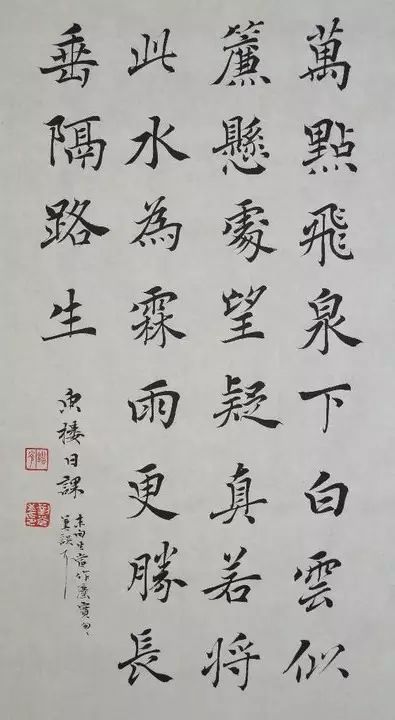 萬點飛泉下白雲似
簾懸處望疑真若將
此水為霖雨更勝長
垂隔路生
樓日課
末句生當作塵